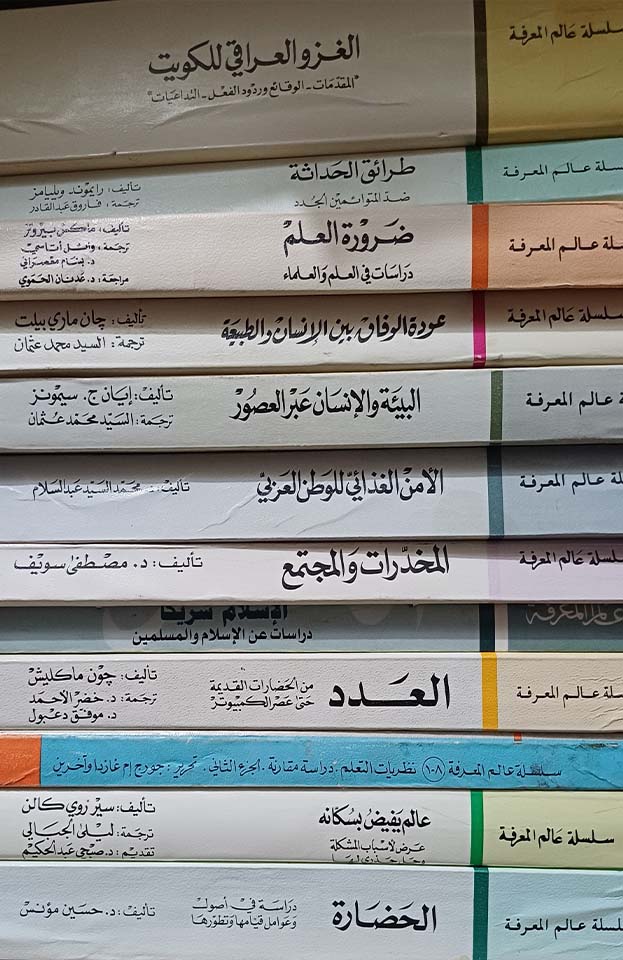 سلسلة عالم المعرفة
الغزو العراقي للكويت
"المقدمات - الوقائع وردود الفعل - التداعيات"
سلسلة عالم المعرفة
طرائق الحداثة
ضد المتوائمين الجدد
تأليف: رايموند ويليامز
ترجمة: فاروق عبدالقادر
سلسلة عالم المعرفة
ضرورة العلم
دراسات في العلم والعلماء
تأليف: ماكس بيروتز
ترجمة: وائل أتاسي
د. بسام معصراني
مراجعة: د. عدنان الحموي
سلسلة عالم المعرفة
عودة الوفاق بين الإنسان والطبيعة
تأليف: چان ماري بيلت
ترجمة: السيد محمد عثمان
سلسلة عالم المعرفة
البيئة والإنسان عبر العصور
تأليف: إيان ج. سيمونز
ترجمة: السيد محمد عثمان
سلسلة عالم المعرفة
الأمن الغذائي للوطن العربي
تأليف: د. محمد السيد عبدالسلام
سلسلة عالم المعرفة
المخدرات والمجتمع
تأليف: د. مصطفى سويف
عالم المعرفة
الإسلام شريكا
دراسات عن الإسلام والمسلمين
سلسلة عالم المعرفة
العدد
من الحضارات القديمة
حتى عصر الكمبيوتر
تأليف: چون ماكليش
ترجمة: د. خضر الأحمد
د. موفق دعبول
سلسلة عالم المعرفة ١٠٨ نظريات التعلم. دراسة مقارنة. الجزء الثاني. تحرير: جورج إم غازدا وآخرين
سلسلة عالم المعرفة
عالم يفيض بسكانه
عرض لأسباب المشكلة
وحل جذري لها
تأليف: سير روي كالن
ترجمة: ليلى الجبالي
تقديم: د. صبحي عبد الحكيم
سلسلة عالم المعرفة
الحضارة
دراسة في أصول
وعوامل قيامها وتطورها
تأليف: د. حسين مؤنس